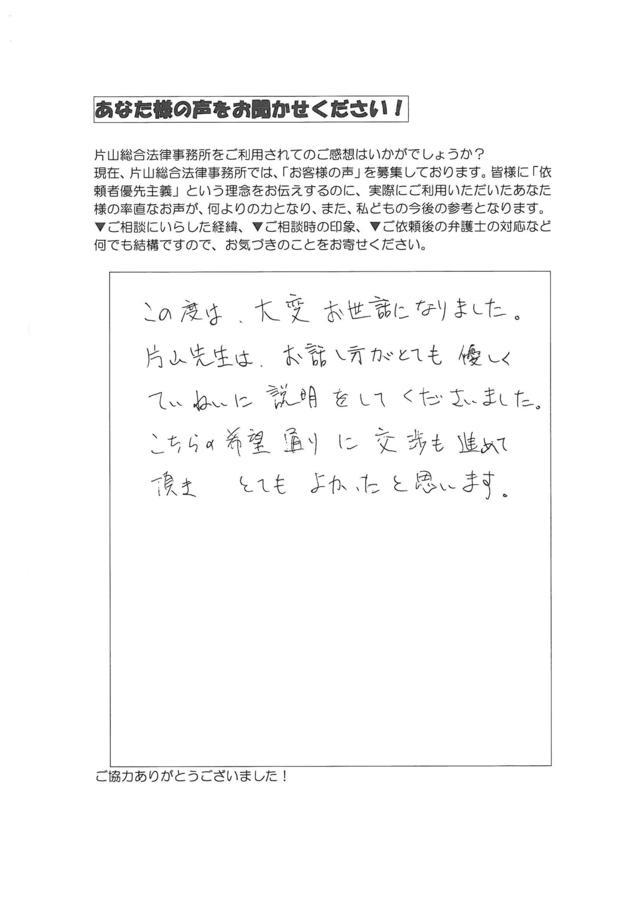 あなた様の声をお聞かせください！
片山総合法律事務所をご利用されてのご感想はいかがでしょうか？
現在、片山総合法律事務所では、「お客様の声」を募集しております。皆様に「依
頼者優先主義」という理念をお伝えするのに、実際にご利用いただいたあなた
様の率直なお声が、何よりの力となり、また、私どもの今後の参考となります。
▼ご相談にいらした経緯、▼ご相談時の印象、▼ご依頼後の弁護士の対応など
何でも結構ですので、お気づきのことをお寄せください。
この度は、大変お世話になりました。
片山先生は、お話し方がとても優しく
ていねいに説明をしてくださいました。
こちらの希望通りに交歩も進めて
頂き とてもよかったと思います。
ご協力ありがとうございました！